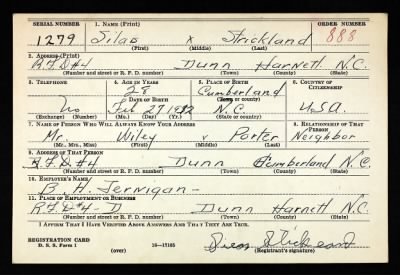 SERIAL NUMBER 1. NAME (Print) ORDER NUMBER
1279 Silas x Strickland 888
(First) (Middle) (Last)
2. ADDRESS (Print)
R.F.D #4 Dunn Harnett N.C.
(Number and street or R. F. D. number) (Town) (County) (State)
3. TELEPHONE 4. AGE IN YEARS 5. PLACE OF BIRTH 6. COUNTRY OF CITIZENSHIP
28 Cumberland
DATE OF BIRTH (Town or county)
No Feb 27 1912 N.C. U.S.A.
(Exchange) (Number) (Mo.) (Day) (Yr.) (State or country)
7. NAME OF PERSON WHO WILL ALWAYS KNOW YOUR ADDRESS 8. RELATIONSHIP OF THAT PERSON
Mr. Wiley v Porter Neighbor
(Mr., Mrs., Miss) (First) (Middle) (Last)
9. ADDRESS OF THAT PERSON
R.F.D #4 Dunn Cumberland N.C.
(Number and street or R. F. D. number) (Town) (County) (State)
10. EMPLOYER'S NAME
B. H. Jernigan -
11. PLACE OF EMPLOYMENT OR BUSINESS
R.F.D #4 - D Dunn Harnett N.C.
(Number and street or R. F. D. number) (Town) (County) (State)
I AFFIRM THAT I HAVE VERIFIED ABOVE ANSWERS AND THAT THEY ARE TRUE.
REGISTRATION CARD
D. S. S. Form 1 16—17105
(over) (Registrant's signature)